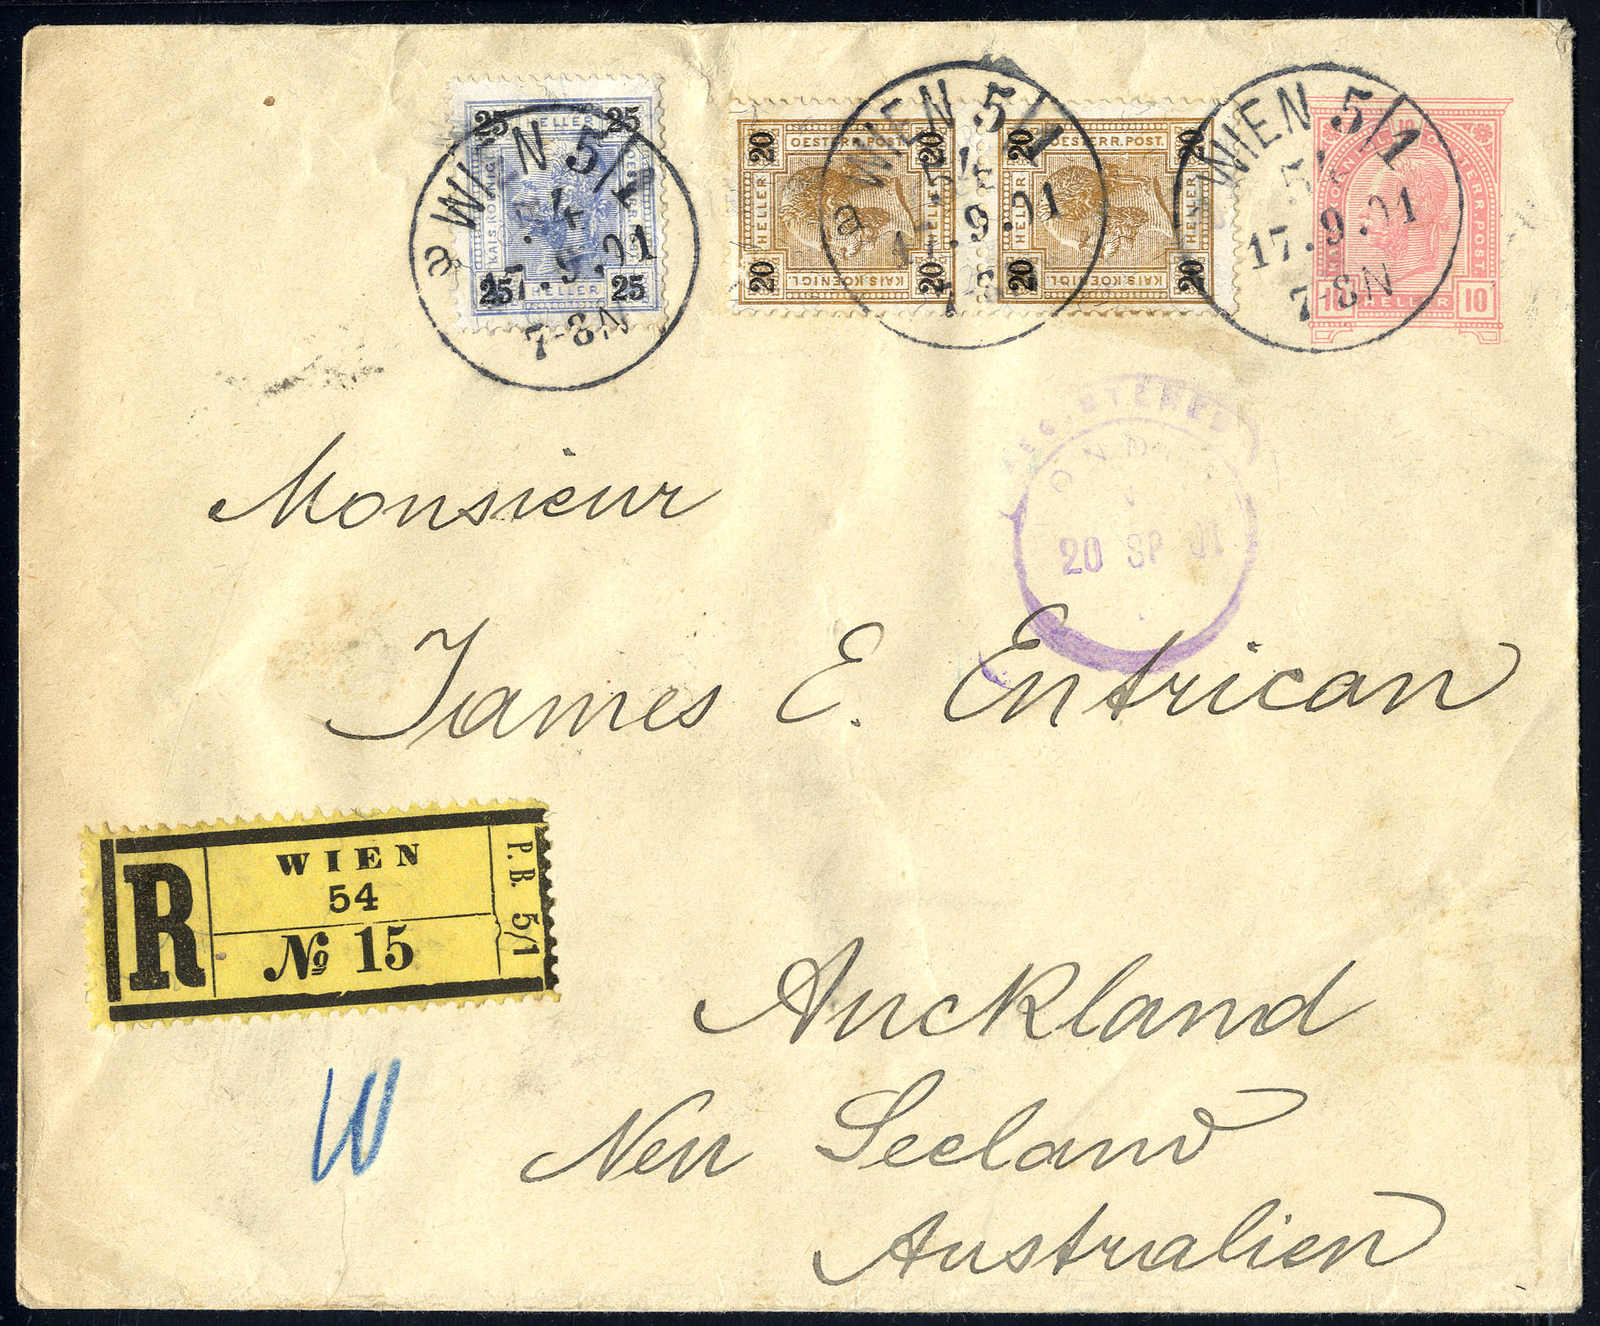 25 25
HELLER
KAIS. KOENIG
OESTERR. POST.
25 25
HELLER
WIEN 5/1
54
17.9.01
7-8N
20 20
OESTERR. POST.
HELLER HELLER
KAIS. KOENIGL
20 20
20 20
OESTERR. POST.
HELLER
KAIS. KOENIGL
20 20
WIEN 5/1
54
17.9.01
WIEN 5/1
54
17.9.01
7-8N
10
OESTERR. POST
10 HELLER 10
REGISTERED
LONDON
20 SP 01
Monsieur
James E. Entrican
R
WIEN
54
No 15
P.B. 5/1
Auckland
Neu Seeland
Australien
W